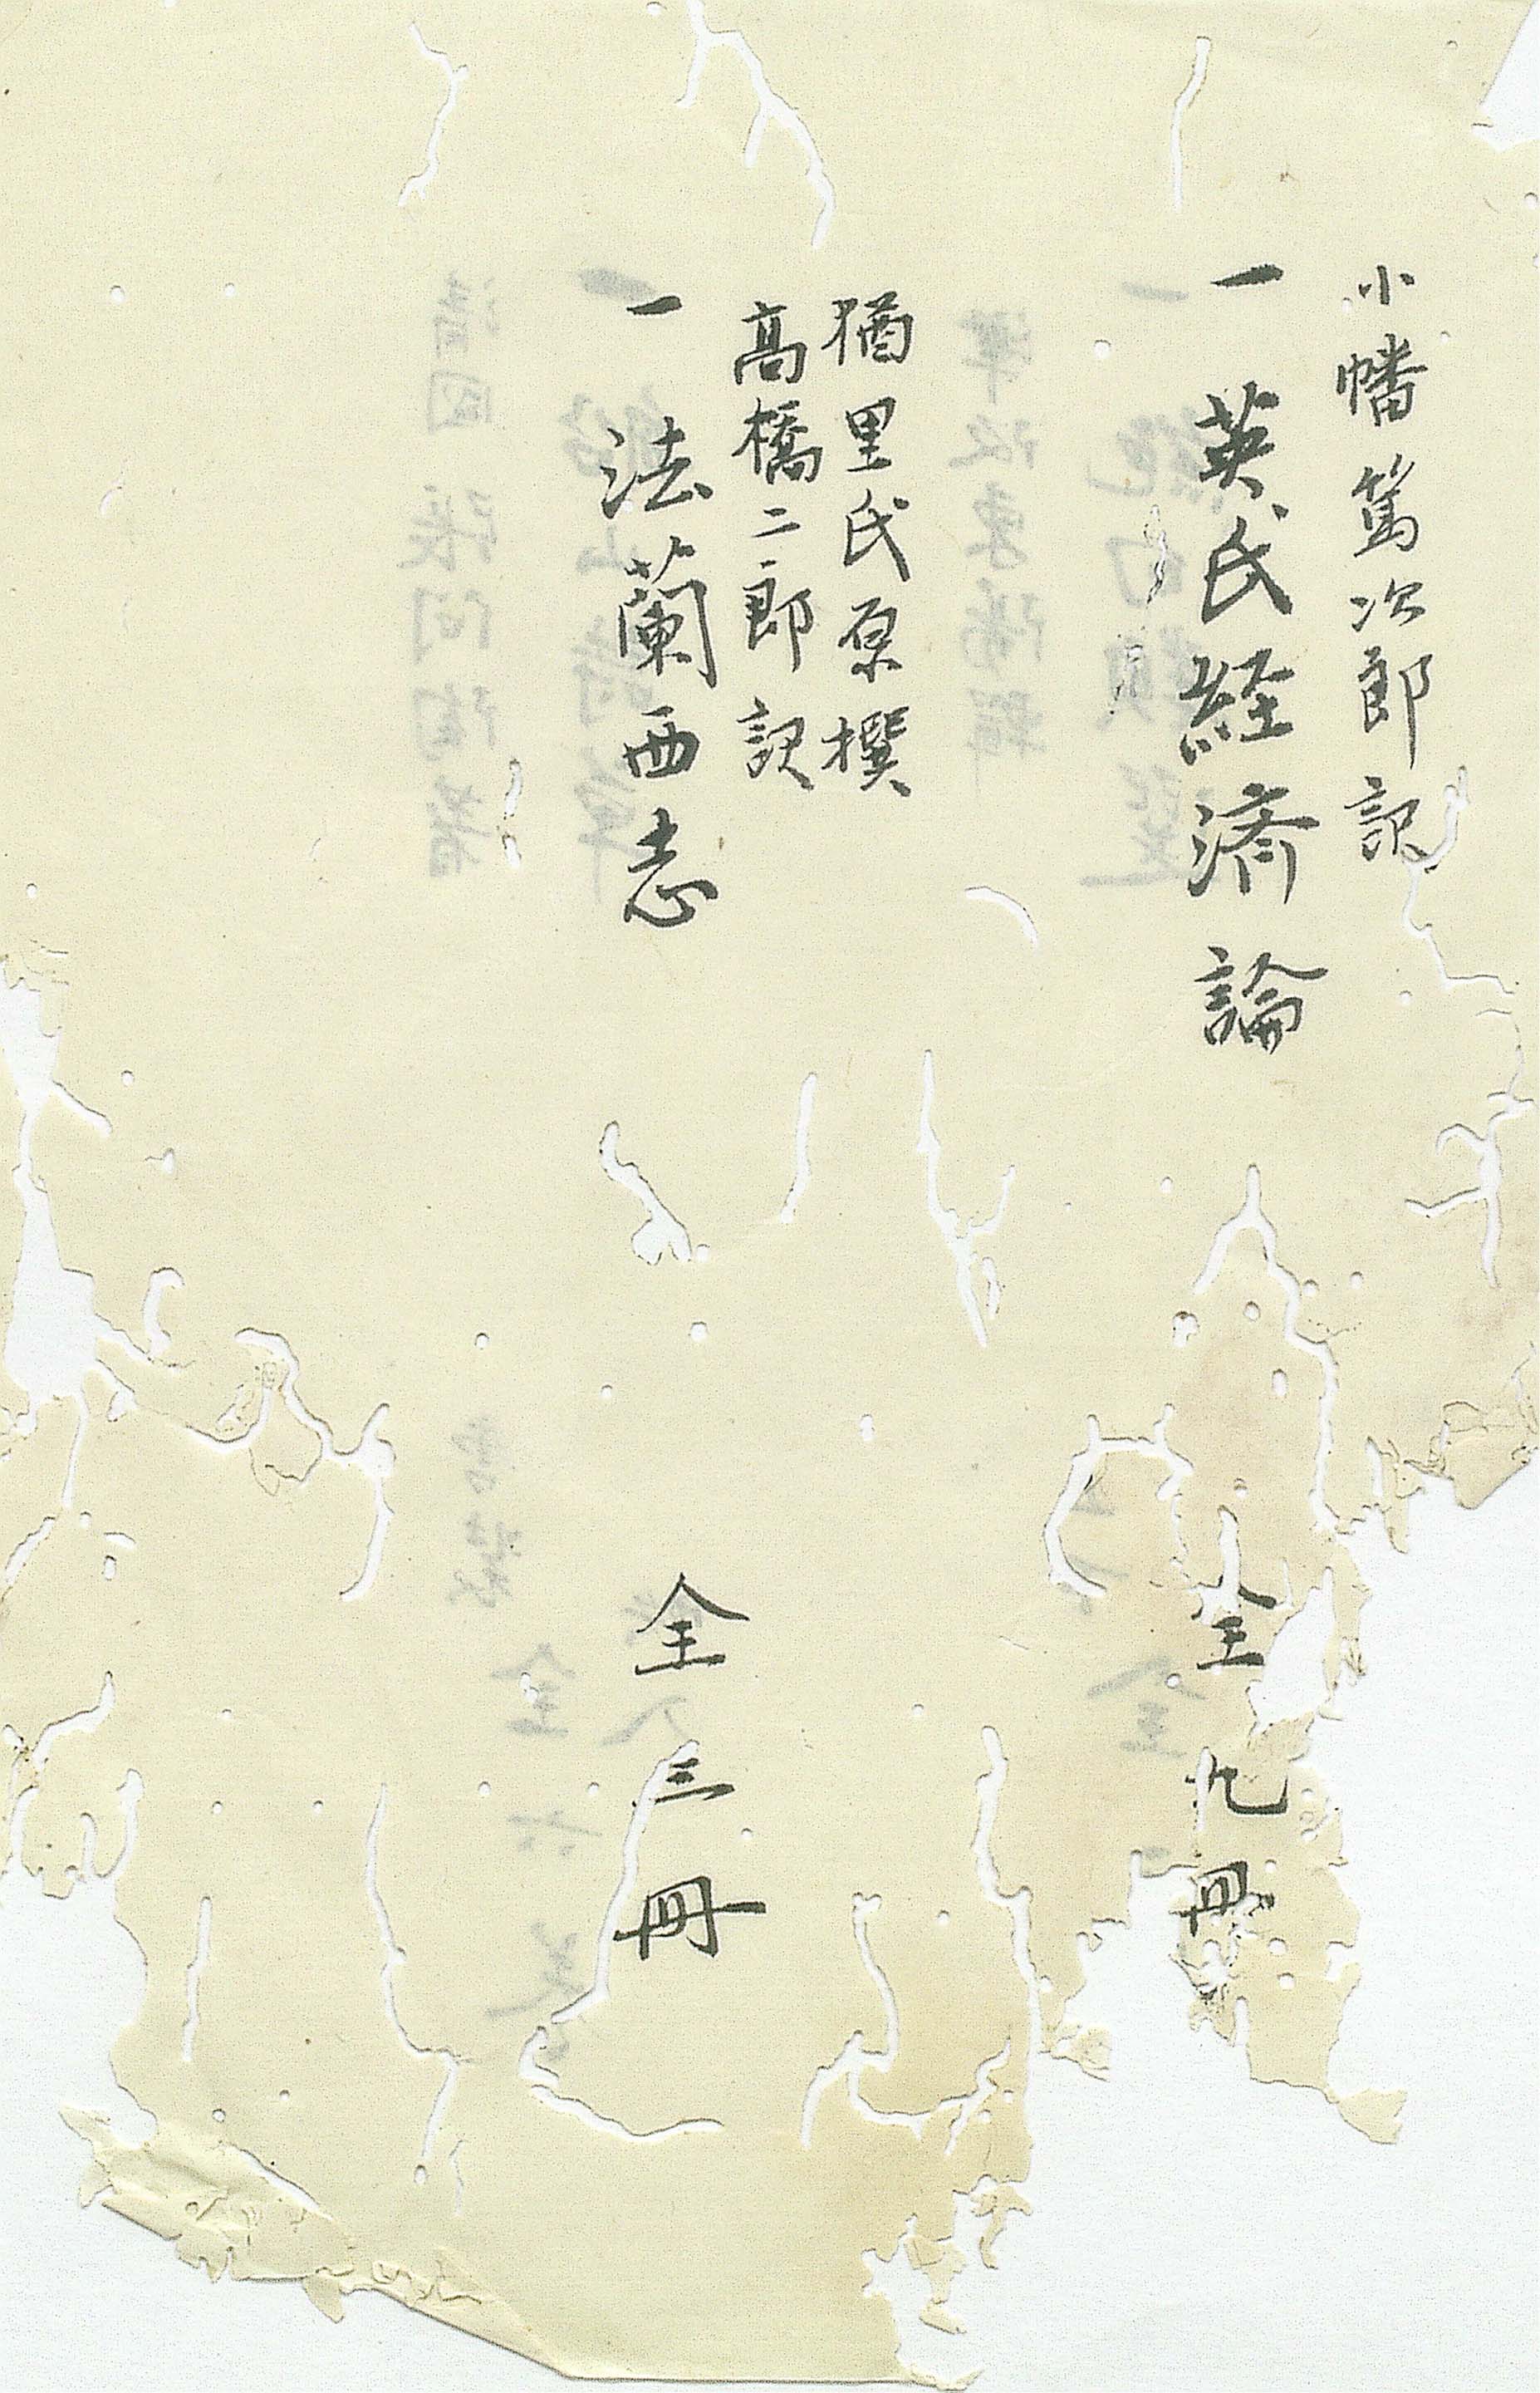 小幡篤次郎訳
一 英氏経済論 全九冊
猶里氏原撰
高橋二郎訳
一 法蘭西志 全三冊